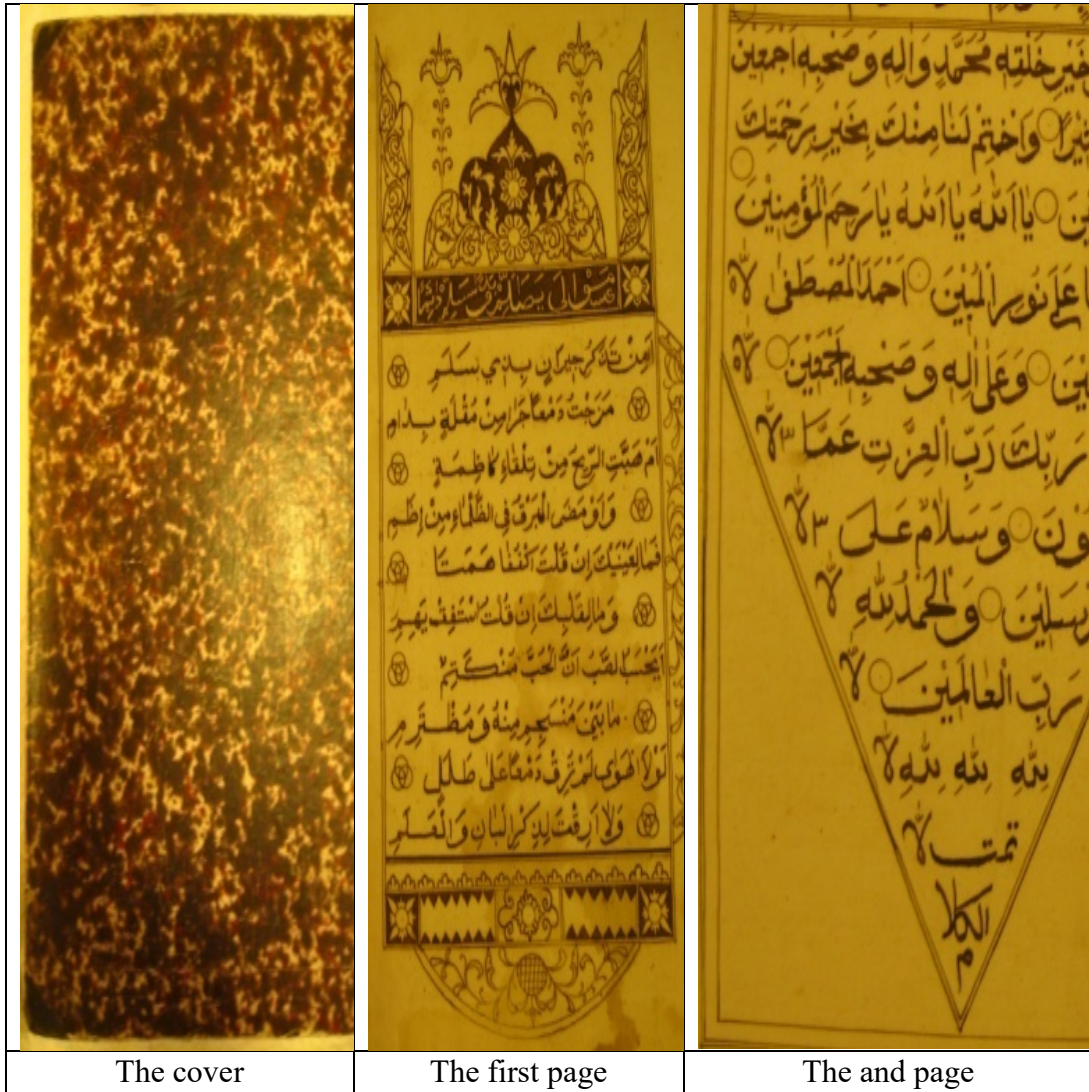 اَمِنْ تَذَكُّرِ جِيْرَانٍ بِذِي سَلَمِ
مَزَجْتَ دَمْعًا جَرَا مِنْ مُقْلَةٍ بِدَامِ
اَمْ هَبَّتِ الرِّيْحُ مِنْ تِلْقَاءِ كَاظِمَةٍ
وَاَوْمَضَ الْبَرْقُ فِي الظَّلْمَاءِ مِنْ اِظَمِ
فَمَا لِعَيْنَيْكَ اِنْ قُلْتَ اكْفُفَا هَمَتَا
وَمَا لِقَلْبِكَ اِنْ قُلْتَ اسْتَفِقْ يَهِمِ
اَيَحْسَبُ الصَّبُّ اَنَّ الْحُبَّ مُنْكَتِمٌ
مَا بَيْنَ مُنْسَجِمٍ مِنْهُ وَمُضْطَرِمِ
لَوْلَا الْهَوَى لَمْ تُرِقْ دَمْعًا عَلَى طَلَلٍ
وَلَا اَرِقْتَ لِذِكْرِ الْبَانِ وَالْعَلَمِ
خَيْرِ خَلْقِهِ مُحَمَّدٍ وَاٰلِهِ وَصَحْبِهِ اَجْمَعِيْنَ
وَاخْتِمْ لَنَا مِنْكَ بِخَيْرٍ بِرَحْمَتِكَ
يَا اَللهُ يَا اَللهُ يَا رَحِمَ الْمُؤْمِنِيْنَ
عَلَى نُوْرِ الْمُبِيْنَ اَحْمَدَ الْمُصْطَفٰى لا
وَعَلَى اٰلِهِ وَصَحْبِهِ اَجْمَعِيْنَ لا
رَبِّكَ رَبِّ الْعِزَّتِ عَمَّا لا
وَسَلَامٌ عَلَى لا
وَالْحَمْدُ لِلّٰهِ لا
رَبِّ الْعَالَمِيْنَ لا
لِلّٰهِ لِلّٰهِ لِلّٰهِ لا
تمت لا
الكلا
م
The cover
The first page
The and page